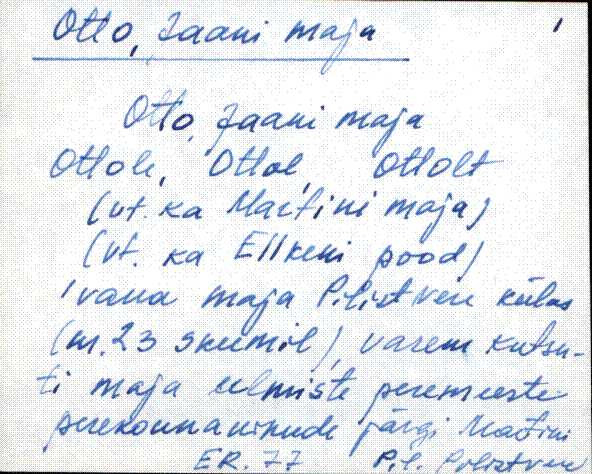 Otto, Jaani maja
1
Otto, Jaani maja
Ottole, Ottol, Ottolt
(vt. ka Martini maja)
(vt. ka Ellkeni pood)
vana maja Pilistvere külas
(nr. 23 skeemil), varem kutsu-
ti maja eelmiste peremeeste
perekonnanimede järgi Martini
ER. 77 Pil. Pilistvere